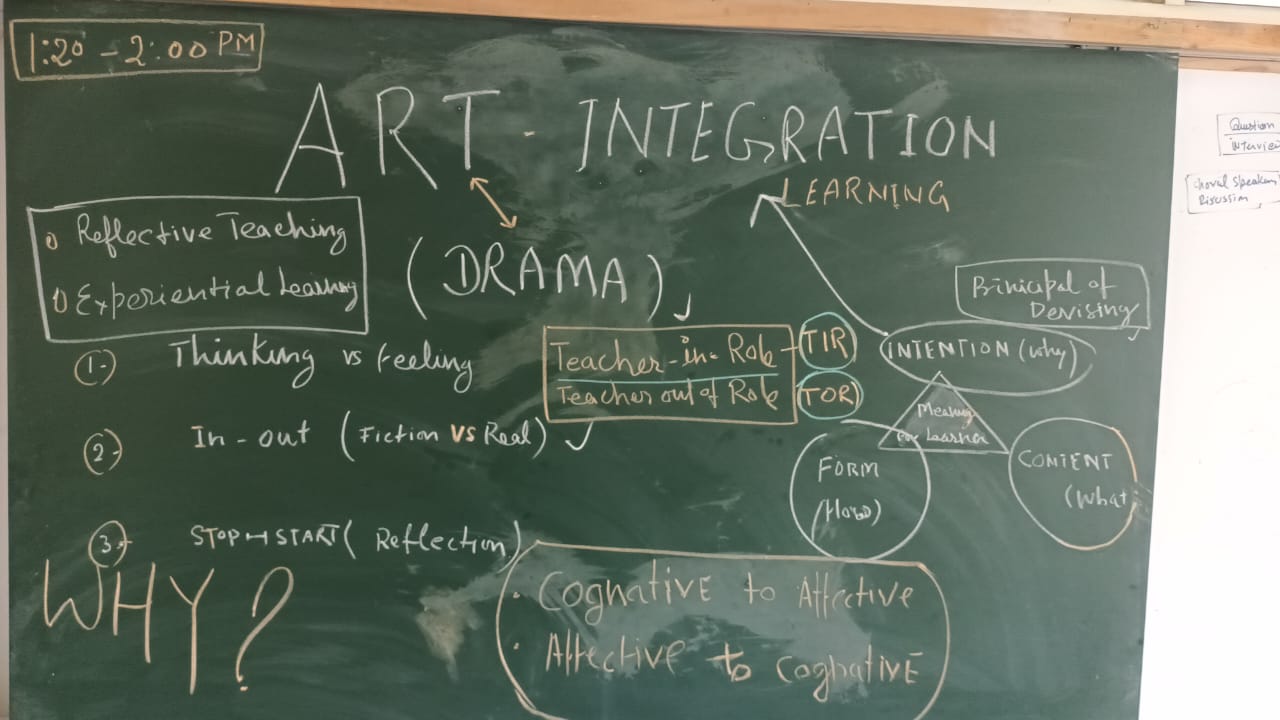 1:20 - 2:00 PM
ART - INTEGRATION
LEARNING
Reflective Teaching
Experiential Learning
(DRAMA)
1 Thinking vs Feeling
Teacher-in-Role - TIR
Teacher out of Role TOR
2 In-out (Fiction VS Real)
3 STOP START (Reflection)
WHY?
Binicipal of
Devising
INTENTION (why)
Meaning
For Learner
FORM
(How)
CONTENT
(What
Cognative to Affective
Affective to Cognative
Question
interview
choral speaking
Discussion